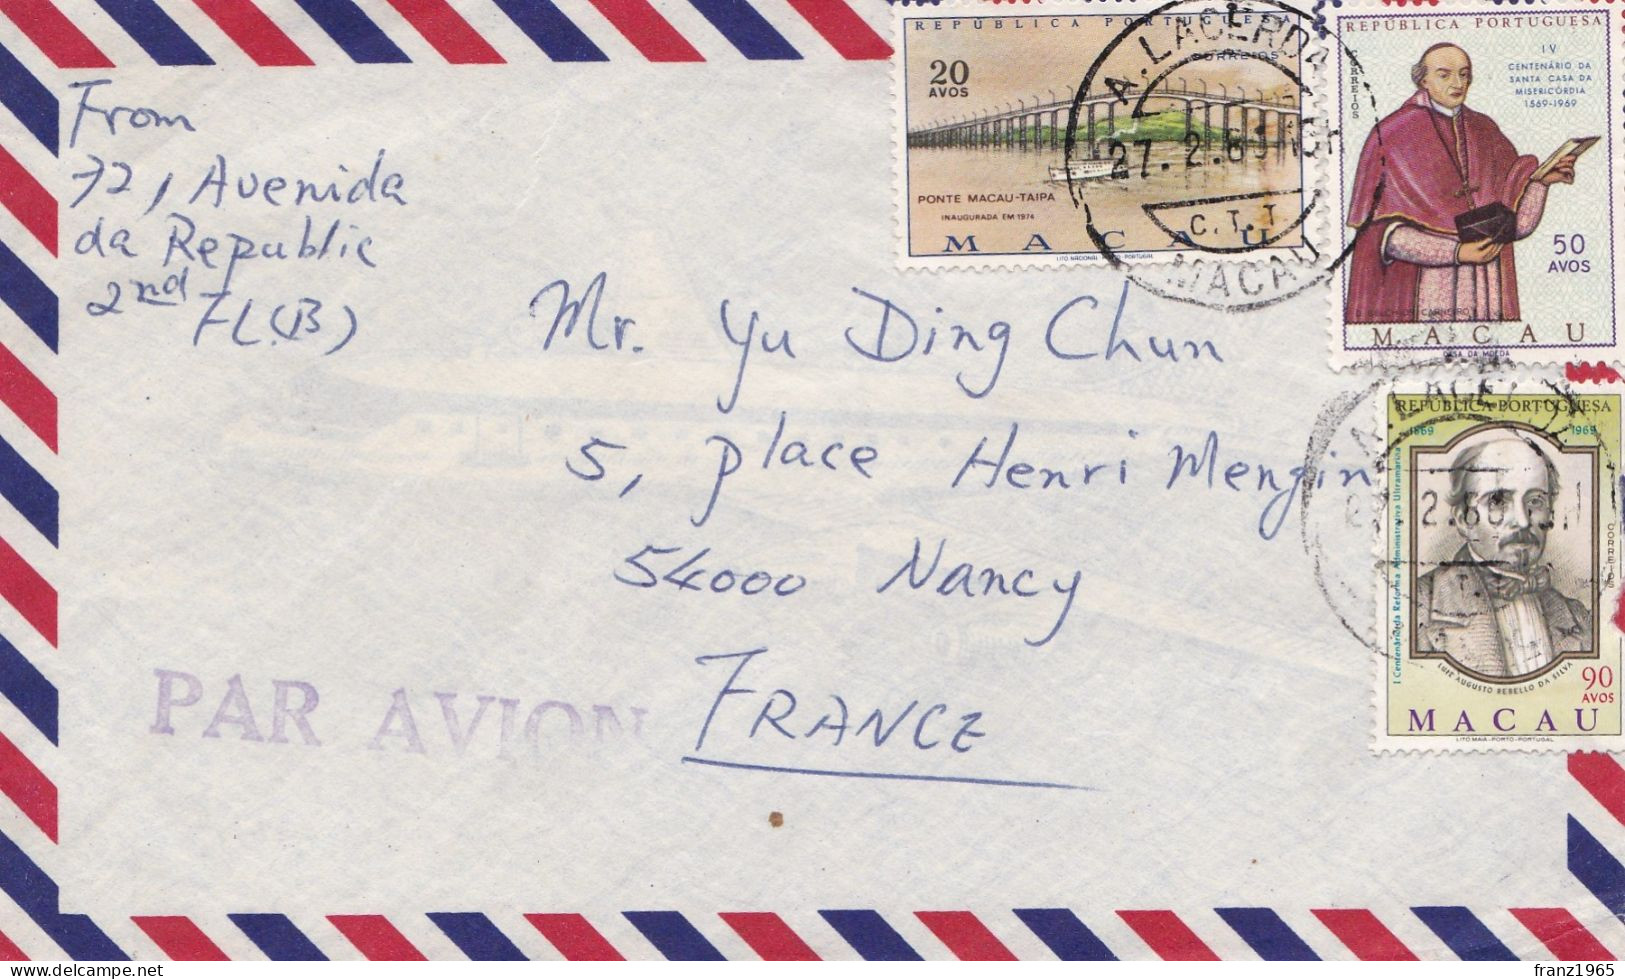 From
72, Avenida
da Republic
2nd FL.(B)
Mr. Yu Ding Chun
5, place Henri Mengin
54000 Nancy
FRANCE
PAR AVION
REPÚBLICA PORTUGUESA
CORREIOS
20
AVOS
PONTE MACAU-TAIPA
INAUGURADA EM 1974
MACAU
LITO NACIONAL PORTO-PORTUGAL
A. LACERDA
27. 2.
C.T.T
MACAU
REPÚBLICA PORTUGUESA
CORREIOS
IV
CENTENÁRIO DA
SANTA CASA DA
MISERICÓRDIA
1569-1969
50
AVOS
CARNEIRO
MACAU
CASA DA MOEDA
REPÚBLICA PORTUGUESA
1869 1969
I Centenário da Reforma Administrativa Ultramarina
CORREIOS
LUIZ AUGUSTO REBELLO DA SILVA
90
AVOS
MACAU
LITO MAIA-PORTO-PORTUGAL
franz1965